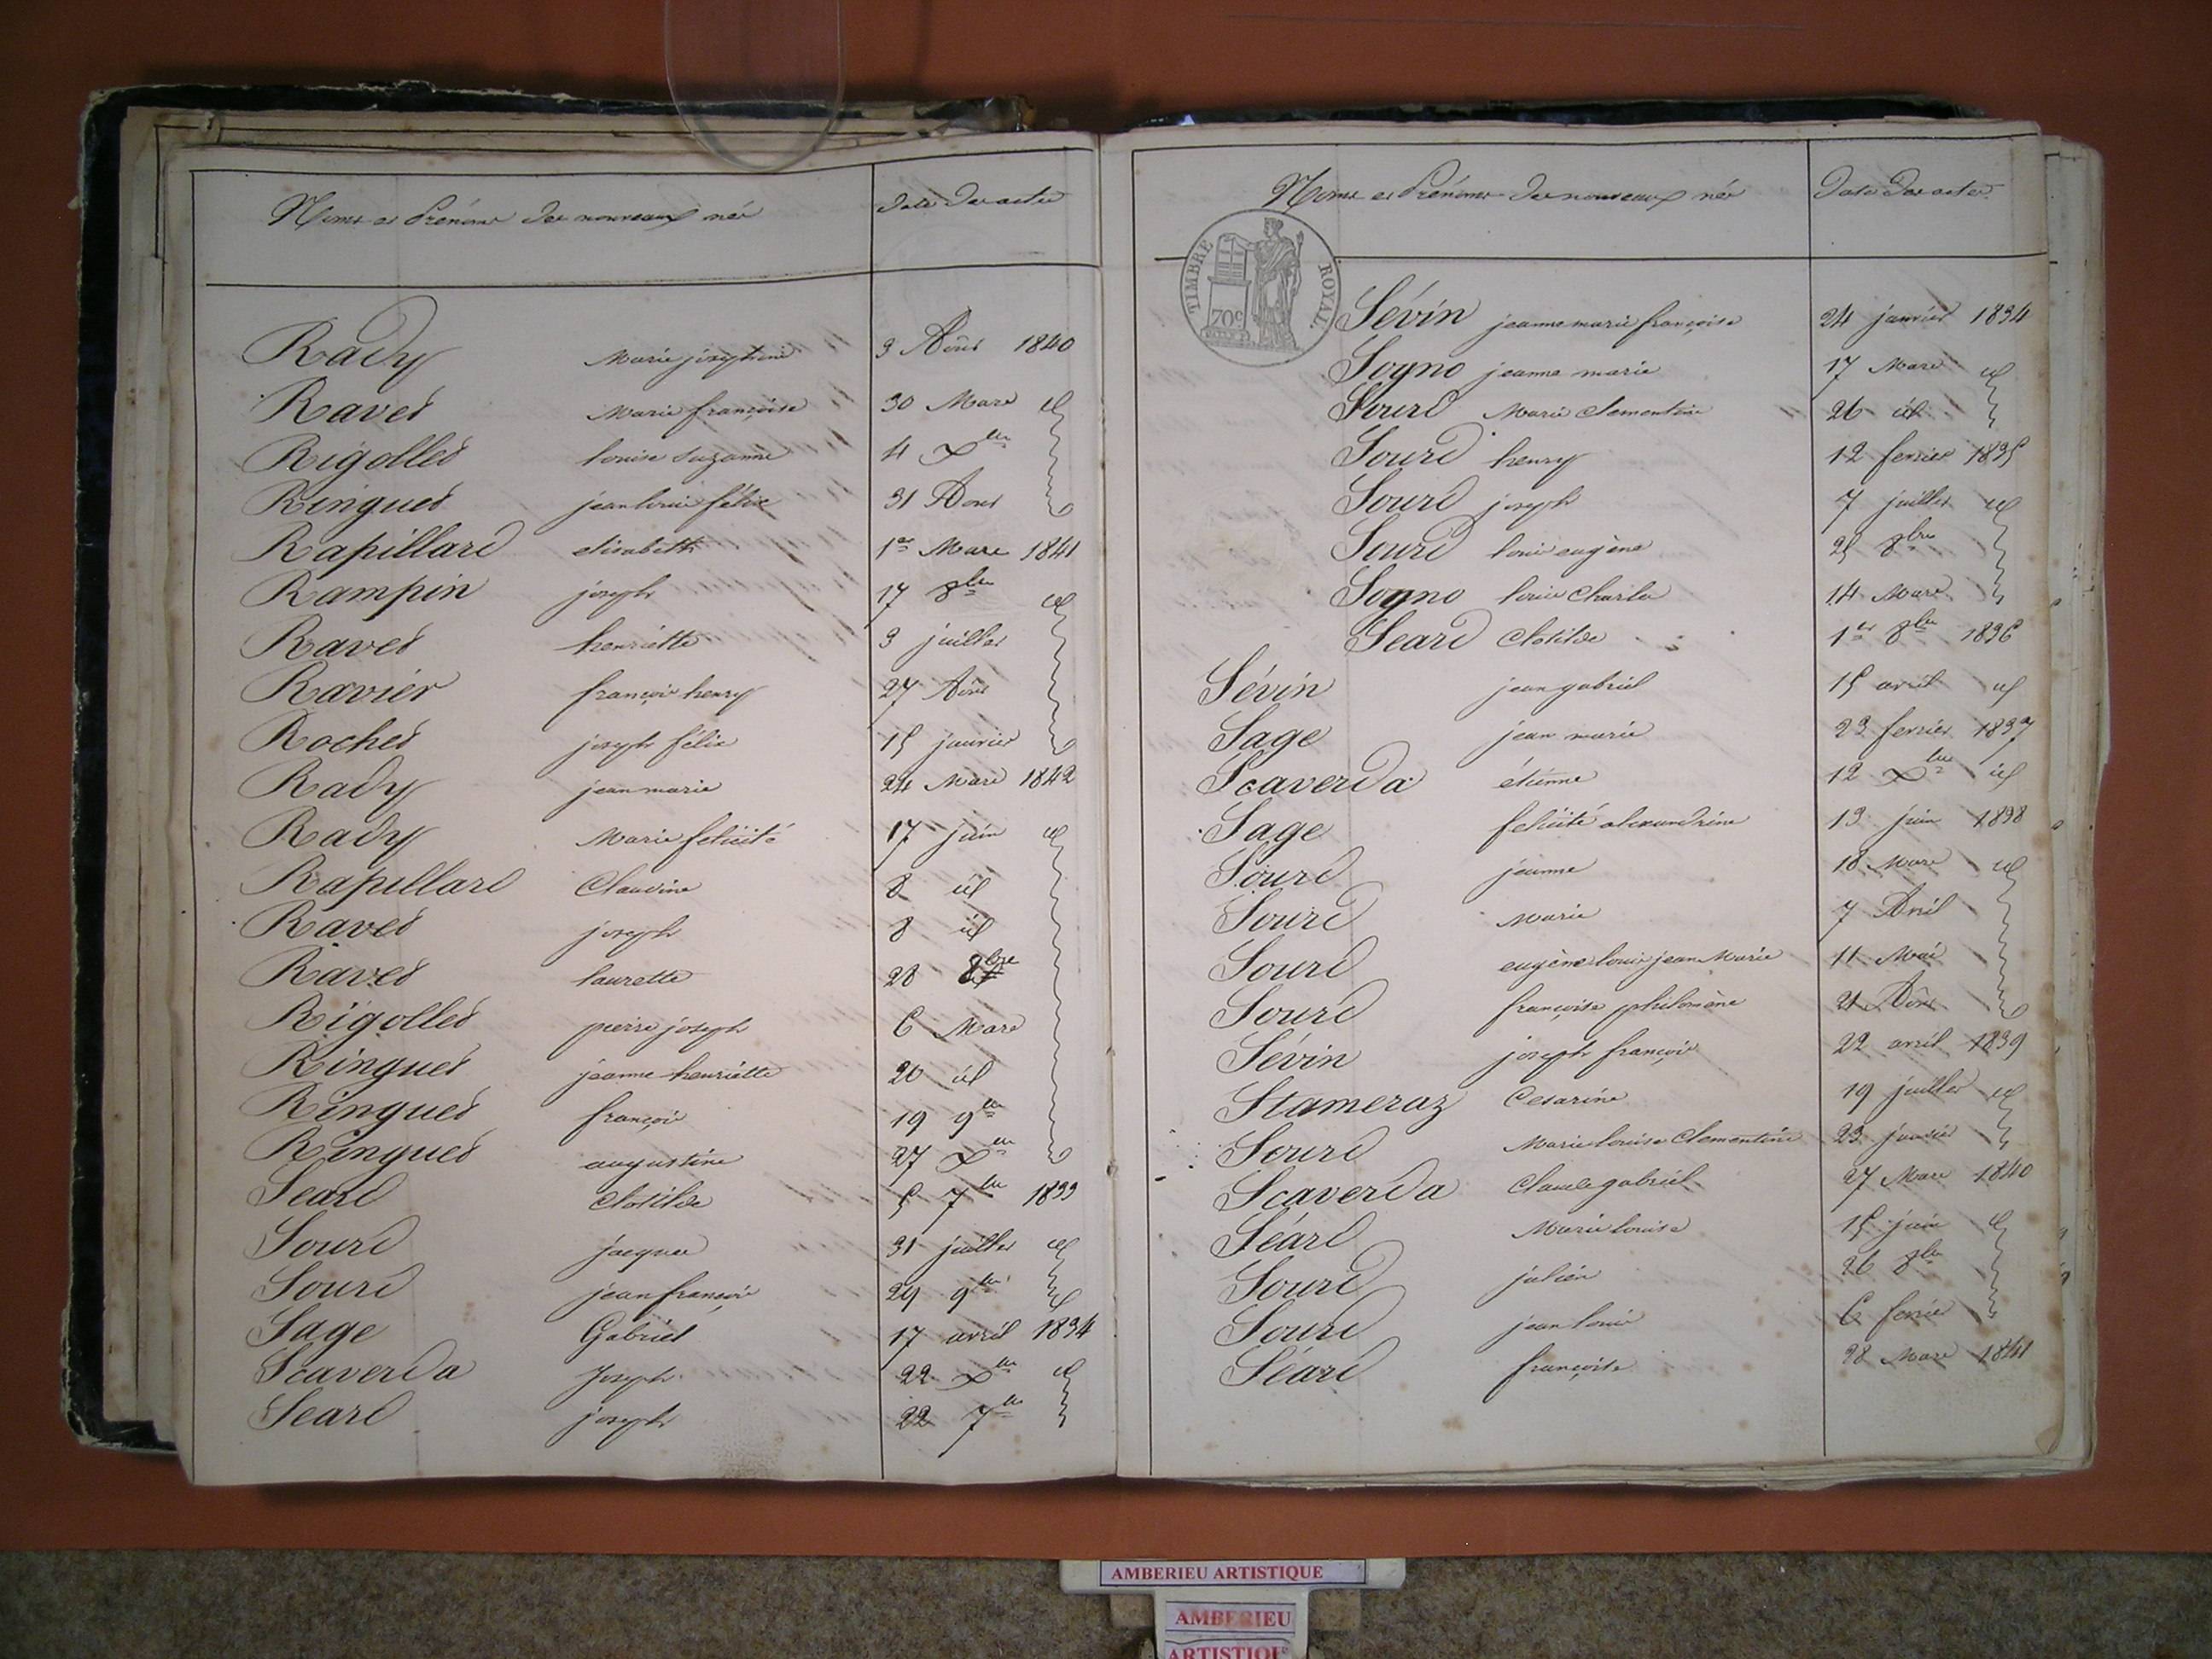 Noms et Prénoms des nouveaux nés Date des actes
Rady Marie josephine 3 Août 1840
Ravet Marie françoise 30 Mars id
Rigollet louise Suzanne 4 Xbre
Ringuet jean louis félix 31 Aout
Rapillard elisabeth 1er Mars 1841
Rampin joseph 17 8bre id
Ravet henriette 3 juillet
Ravier françois henry 27 Août
Rochet joseph félix 15 janvier
Rady jean marie 24 Mars 1842
Rady Marie felicité 17 juin id
Rapillard Claudine 8 id
Ravet joseph 8 id
Ravet laurette 28 8bre
Rigollet pierre joseph 6 Mars
Ringuet jeanne henriette 20 id
Ringuet françois 19 9bre
Ringuet augustine 27 Xbre
Seard Clotilde 5 7bre 1833
Sourd jacques 31 juillet id
Sourd jean françois 29 9bre id
Sage Gabriel 17 avril 1834
Scaverda Joseph 22 Xbre id
Seard joseph 22 7bre
Noms et Prénoms des nouveaux nés Date des actes
TIMBRE ROYAL
70c
Sévin jeanne marie françoise 24 janvier 1834
Sogno jeanne marie 17 Mars id
Sourd Marie Clementine 26 id
Sourd henry 12 fevrier 1835
Sourd joseph 7 juillet id
Sourd louis eugène 25 8bre
Sogno louis Charles 14 Mars
Seard Clotilde 1er 8bre 1836
Sévin jean gabriel 15 avril id
Sage jean marie 23 fevrier 1837
Scaverda étienne 12 Xbre id
Sage felicité alexandrine 13 juin 1838
Sourd jeanne 18 Mars id
Sourd Marie 7 Avril
Sourd eugène louis jean Marie 11 Mai
Sourd françoise philomène 21 Août
Sévin joseph françois 22 avril 1839
Stameraz Cesarine 19 juillet id
Sourd Marie louise Clementine 23 janvier
Scaverda Claude gabriel 27 Mars 1840
Séard Marie louise 15 juin id
Sourd julien 26 8bre
Sourd jean louis 6 fevrier
Séard françoise 28 Mars 1841
AMBERIEU ARTISTIQUE
AMBERIEU
ARTISTIQUE